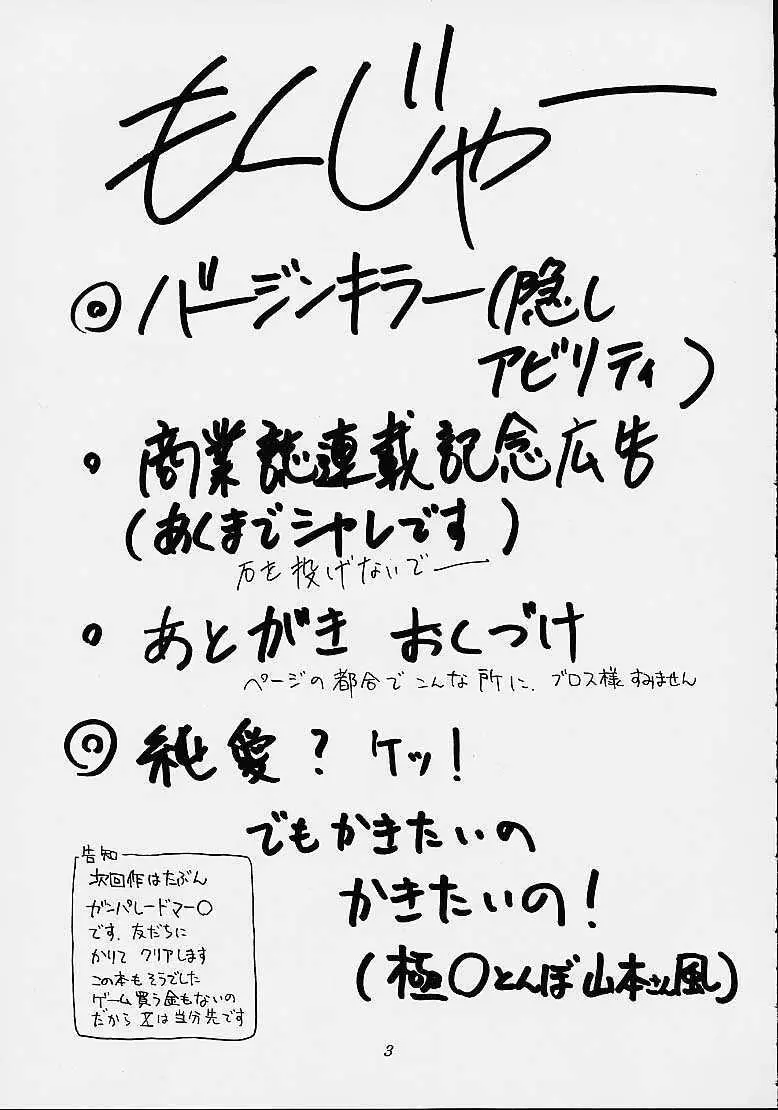 もくじゃー
◎バージンキラー(隠し
アビリティ)
・商業誌連載記念広告
(あくまでシャレです)
石を投げないでー
・あとがき おくづけ
ページの都合でこんな所に、ブロス様すみません
◎純愛?ケッ!
でもかきたいの
かきたいの!
(極〇とんぼ山本さん風し)
告知
次回作はたぶん
ガンパレードマー〇
です. 友だちに
かりて クリアします
この本もそうでした
ゲーム買う金もないの
だから Xは当分先です
3